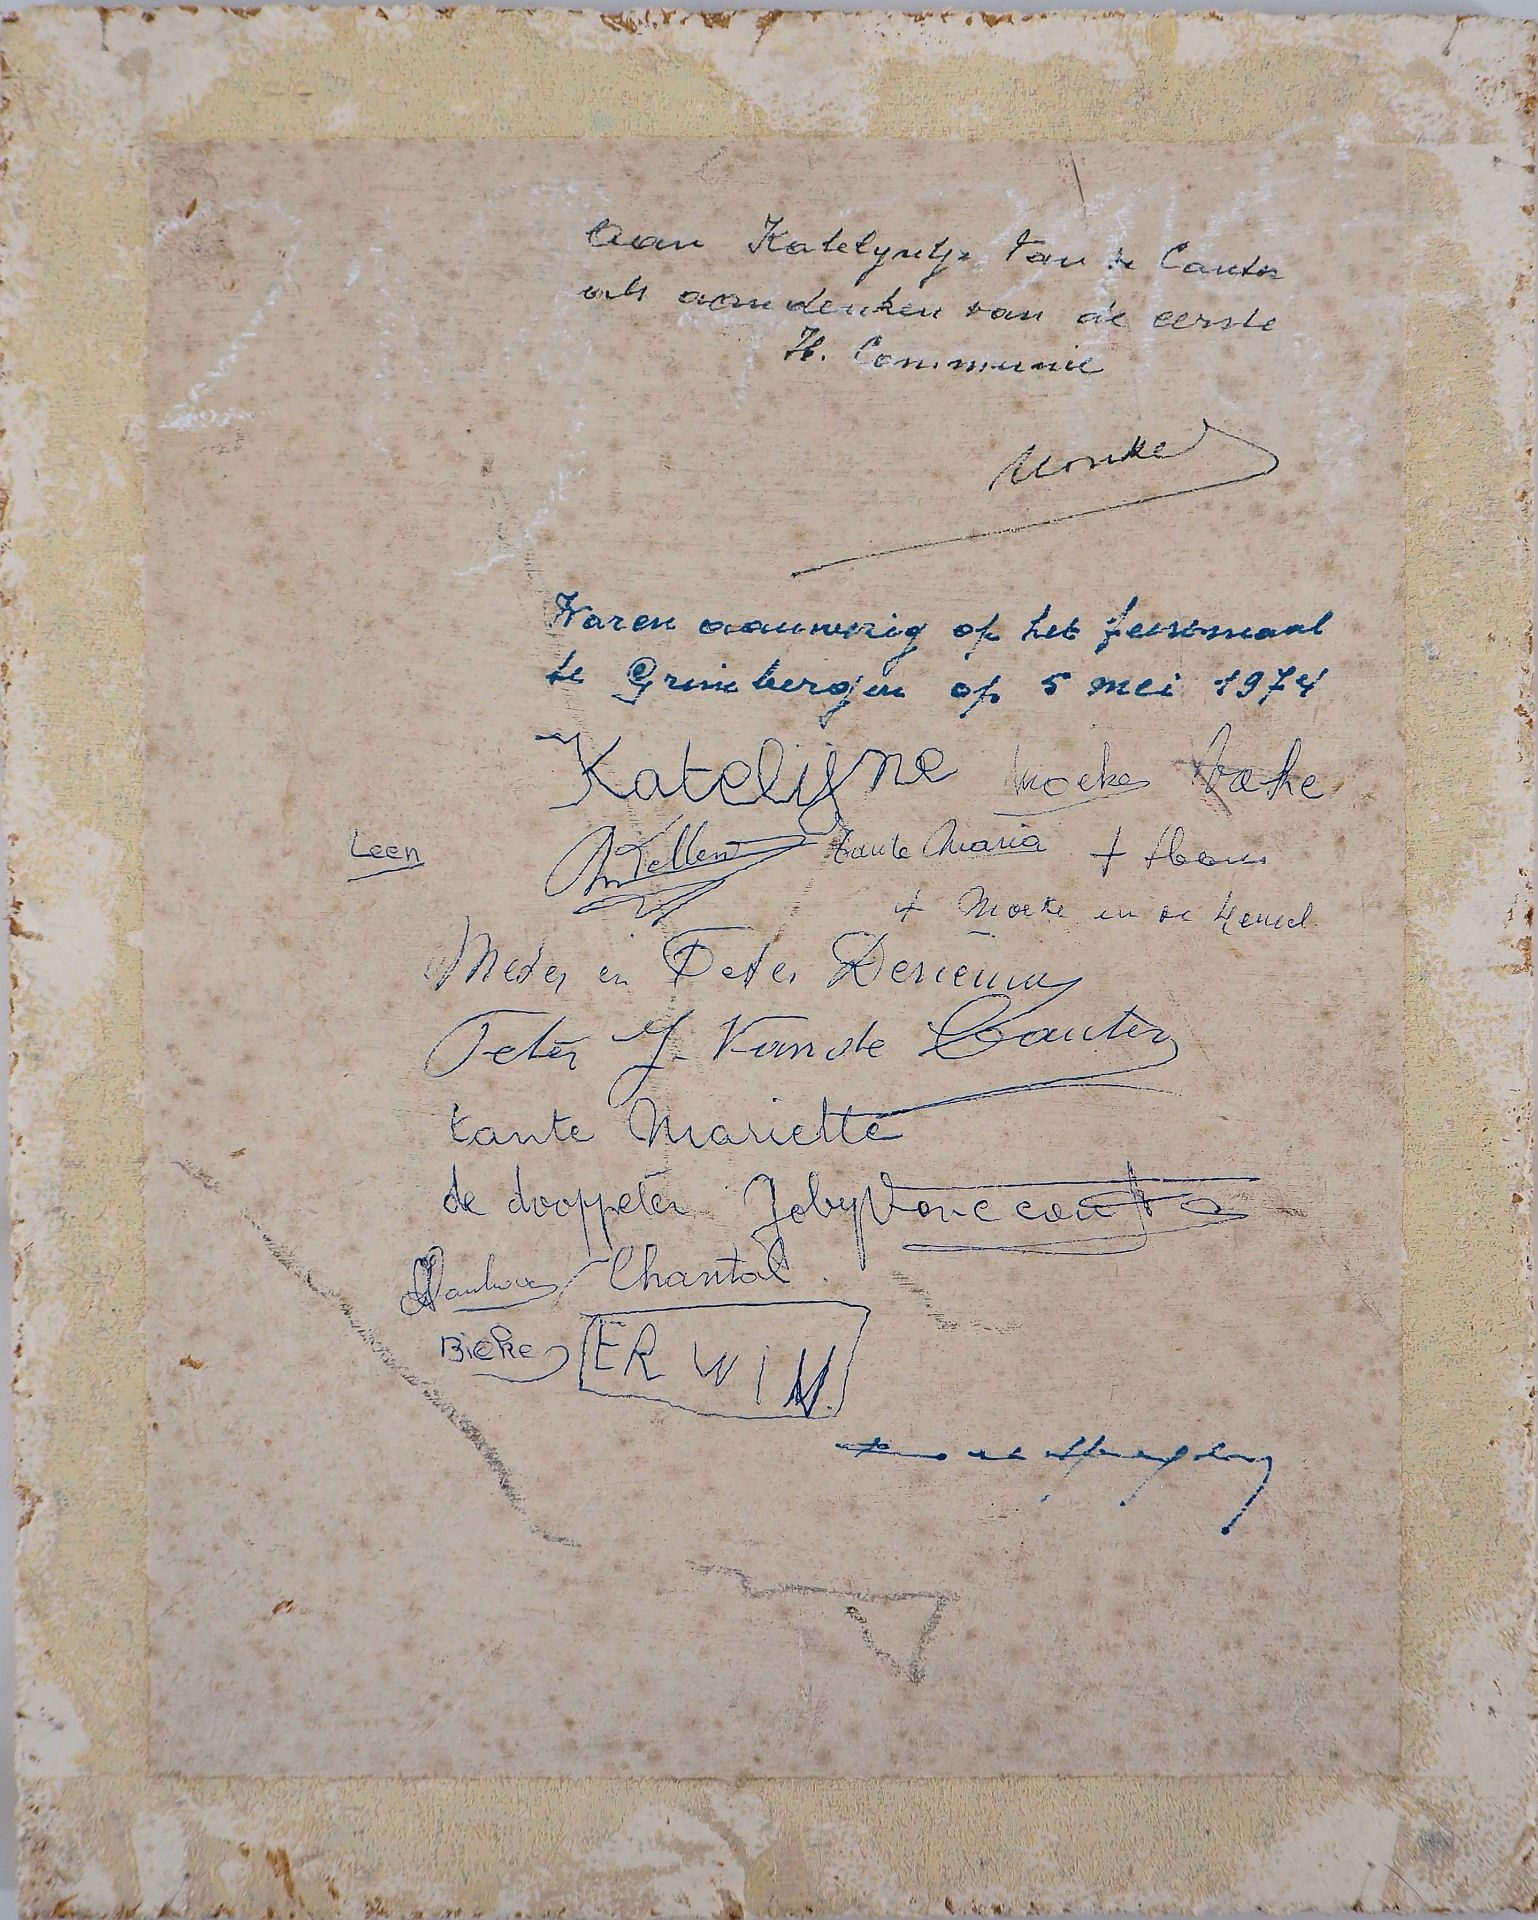 Aan Katelyntje Van de Cauter
als aandenken van de eerste
H. Communie
Nonkel
Waren aanwezig op het feestmaal
te Grimbergen op 5 mei 1974
Katelijne Moeke Vake
Leen tante Maria +
+ Moeke in de Hemel
Meter en Peter
Peter J. Van de Cauter
tante Mariette
de dooppeter
Chantal
Bieke ERWIN